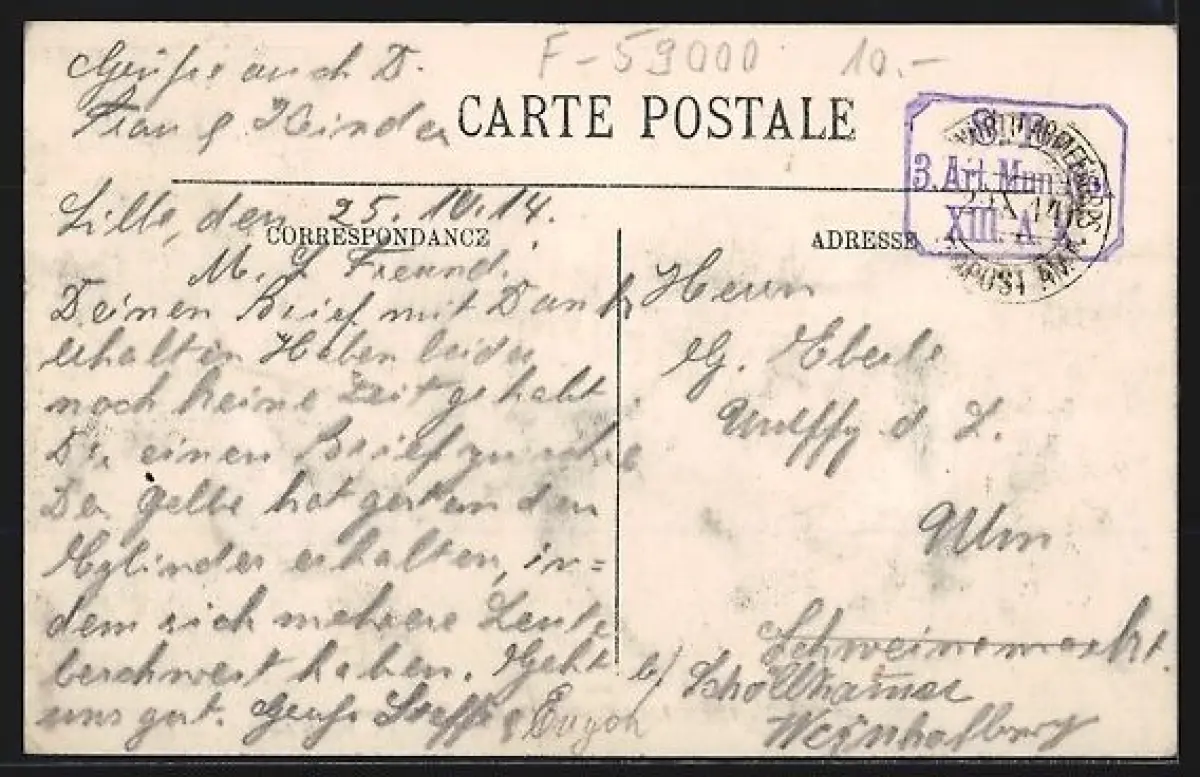 F-59000 10.-
Grüsse auch D.
Frau & Kinder
CARTE POSTALE
3. Art. Mun.
XIII. A. K.
Lille, den 25.10.14.
CORRESPONDANCE
ADRESSE
M. L. Freund.
Deinen Brief mit Dank
erhalten Haben leider
noch keine Zeit gehabt
Dir einen Brief zu
Der gelbe hat gestern den
Zylinder erhalten, in=
dem sich mehrere Leute
beschwert haben. Geht
uns gut. Gruss Steff & Eugen
Herrn
G. Eberle
d. L.
Ulm
Schweinemarkt.
b/ Schollhammer